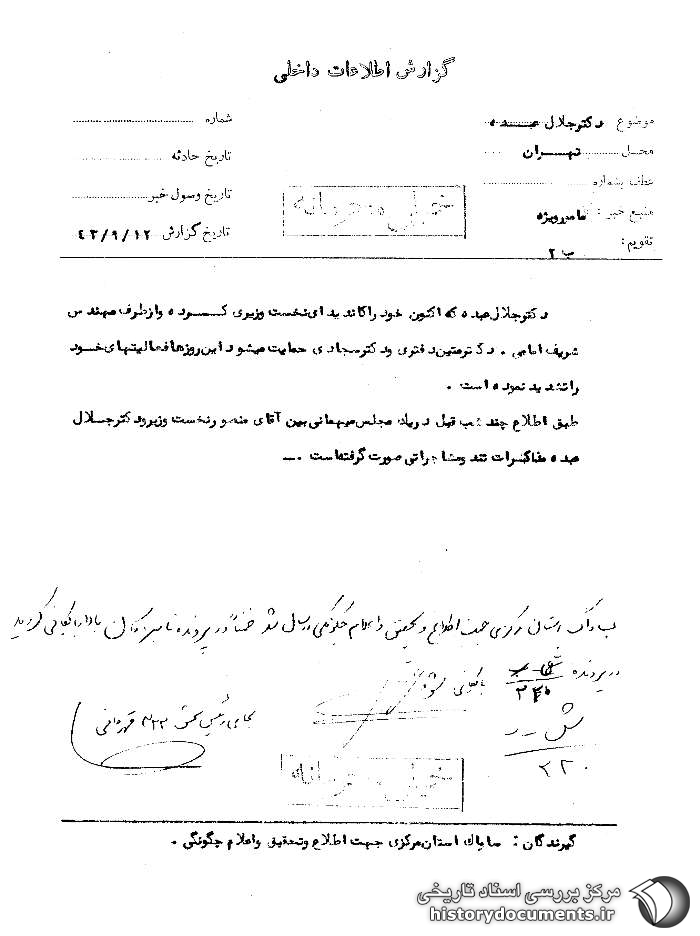 گزارش اطلاعات داخلی
موضوع دکتر جلال عبده
محل تهران
عطف بشماره
منبع خبر : مامور ویژه
تقویم : ب ۲
شماره
تاریخ حادثه
تاریخ وصول خبر
تاریخ گزارش ۴۳/۹/۱۲
خیلی محرمانه
دکتر جلال عبده که اکنون خود را کاندیدای نخست وزیری کرده و از طرف مهندس
شریف امامی ، دکتر متین دفتری و دکتر سجادی حمایت میشود این روزها فعالیتهای خود
را تشدید نموده است .
طبق اطلاع چند شب قبل در یک مجلس میهمانی بین آقای منصور نخست وزیر و دکتر جلال
عبده مذاکرات تند و مشاجراتی صورت گرفته است .
ساواک استان مرکزی جهت اطلاع و تحقیق و اعلام چگونگی ارسال شد ضمناً در پرونده
در پرونده بایگانی شود
بجای رئیس بخش ۳۲۲ قهرمانی
خیلی محرمانه
گیرندگان : ساواک استان مرکزی جهت اطلاع و تحقیق و اعلام چگونگی .
مرکز بررسی اسناد تاریخی
historydocuments.ir